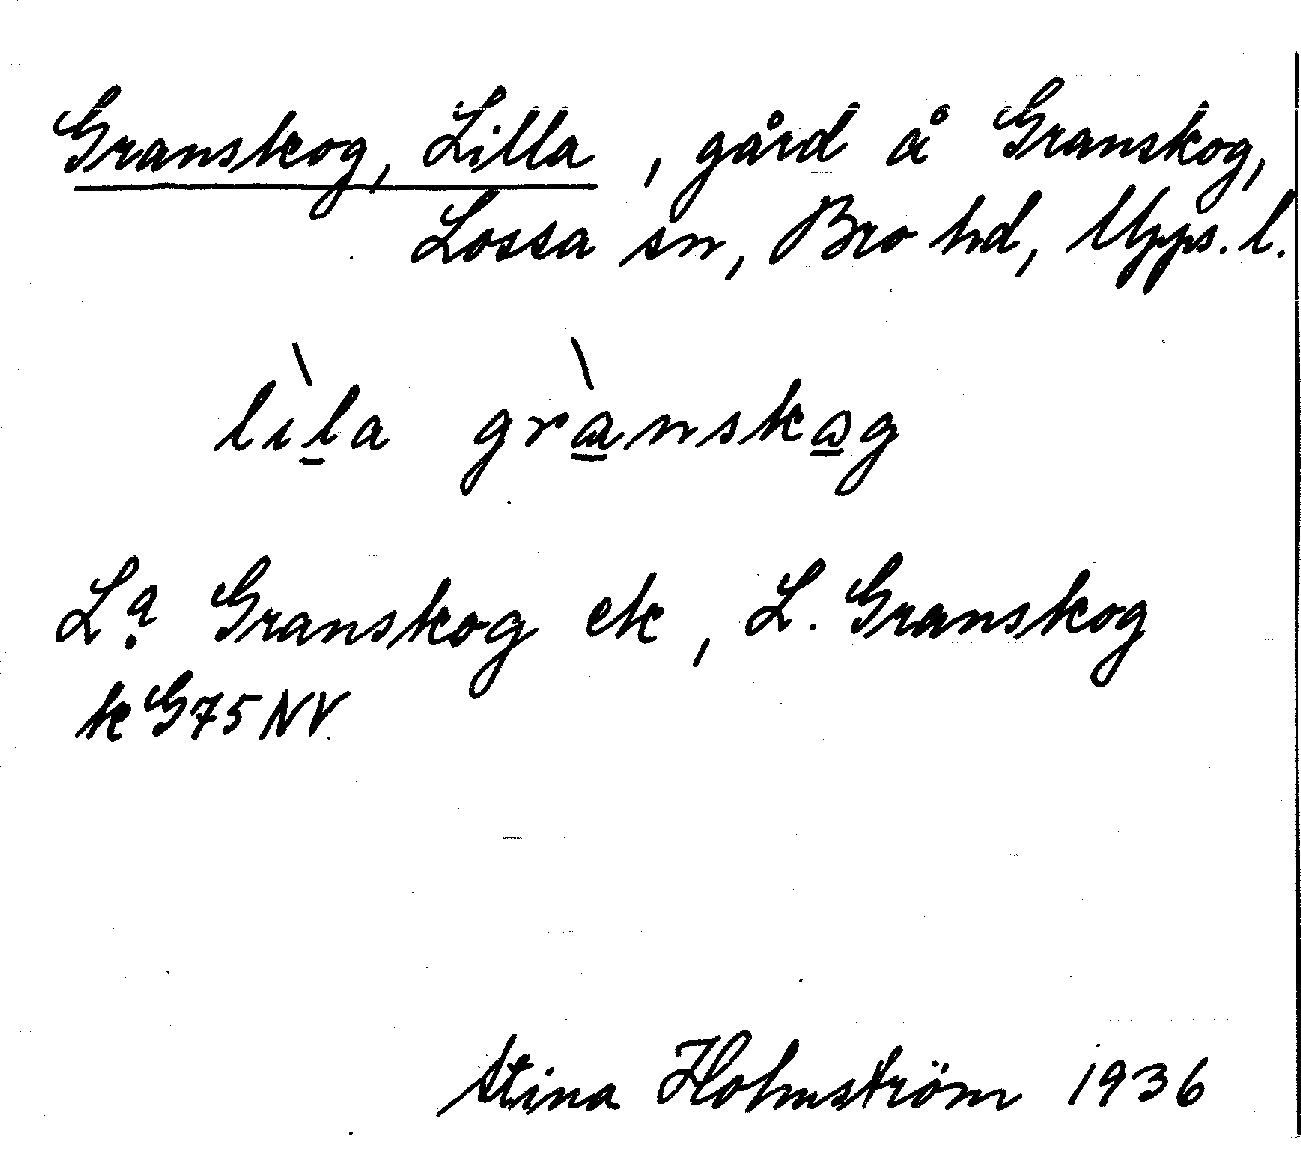 Granskog, Lilla, gård å Granskog,
Lossa sn, Bro hd, Upps. l.
lìl̠a gràn̠skog
Lᵃ. Granskog ek, L. Granskog
k G 75 NV.
Stina Holmström 1936